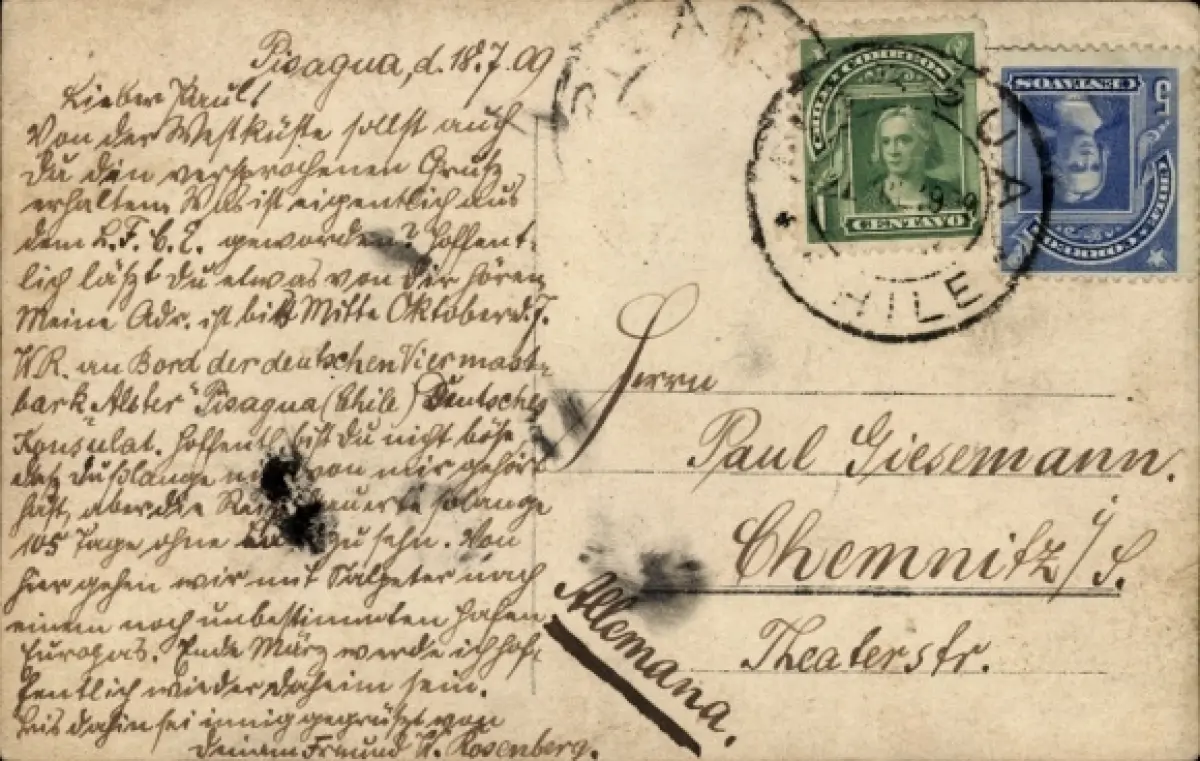 Pisagua, d. 18.7.09
Lieber Paul!
Von der Westküste sollst auch
Du den versprochenen Gruß
erhalten. Was ist eigentlich aus
dem L.F.C.E. geworden? Hoffent-
lich läßt Du etwas von Dir hören
Meine Adr. ist bis Mitte Oktober d.J.
W.R. an Bord der deutschen Viermast-
bark "Alster" Pisagua (Chile) Deutsches
Konsulat. Hoffentl. bist Du nicht böse
daß Du solange von mir gehört
hast, aber die Reise dauerte solange
105 Tage ohne zu sehn. Von
hier gehen wir mit Salpeter nach
einem noch unbestimmten Hafen
Europas. Ende März werde ich hof-
fentlich wieder daheim sein.
Bis dahin sei innig gegrüßt von
Deinem Freund W. Rosenberg.
CHILE CORREOS
CENTAVO
5 CENTAVOS
CHILE CORREOS
CHILE
Herrn
Paul Giesemann.
Chemnitz i/S.
Theaterstr.
Allemana.